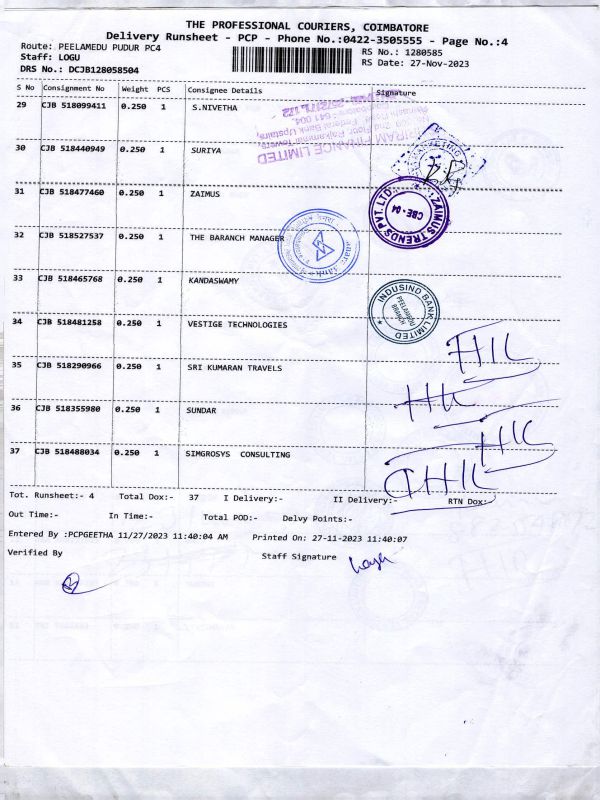 THE PROFESSIONAL COURIERS, COIMBATORE
Delivery Runsheet - PCP - Phone No.:0422-3505555 - Page No.:4
Route: PEELAMEDU PUDUR PC4
RS No.: 1280585
Staff: LOGU
RS Date: 27-Nov-2023
DRS No.: DCJB128058504
S No Consignment No Weight PCS Consignee Details Signature
29 CJB 518099411 0.250 1 S.NIVETHA
FINANCE LIMITED
30 CJB 518440949 0.250 1 SURIYA
31 CJB 518477460 0.250 1 ZAIMUS
ZAIMUS TRENDS PVT. LTD.
CBE - 04
32 CJB 518527537 0.250 1 THE BARANCH MANAGER
33 CJB 518465768 0.250 1 KANDASWAMY
INDUSIND BANK LIMITED
PEELAMEDU
BRANCH
34 CJB 518481258 0.250 1 VESTIGE TECHNOLOGIES
35 CJB 518290966 0.250 1 SRI KUMARAN TRAVELS
36 CJB 518355980 0.250 1 SUNDAR
37 CJB 518488034 0.250 1 SIMGROSYS CONSULTING
Tot. Runsheet:- 4 Total Dox:- 37 I Delivery:- II Delivery:- RTN Dox:
Out Time:- In Time:- Total POD:- Delvy Points:-
Entered By :PCPGEETHA 11/27/2023 11:40:04 AM Printed On: 27-11-2023 11:40:07
Verified By Staff Signature